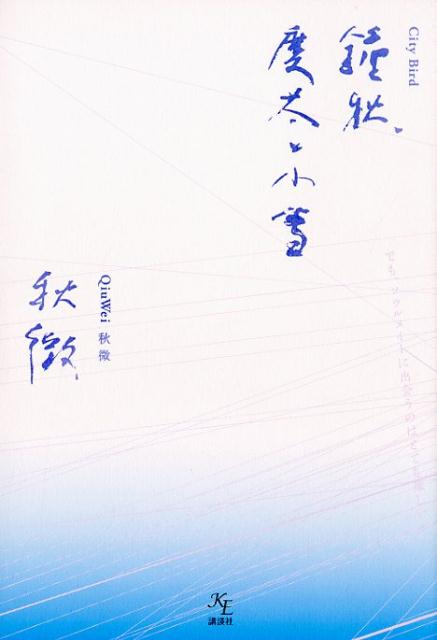 City Bird
慶太と小雪
でも、ソウルメイトに出会うのは
QiuWei 秋微
秋微
KE
講談社